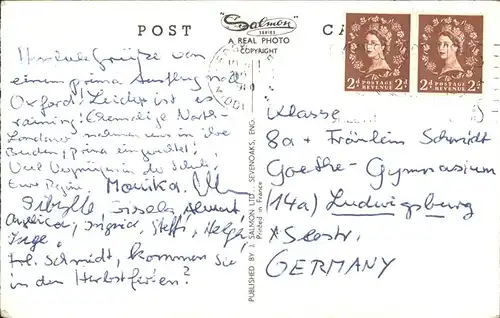 POST
"Salmon"
SERIES
A REAL PHOTO
COPYRIGHT
Herzliche Grüße von
einem prima Ausflug nach
Oxford! Leider ist es
raining! Ehemalige North-
Londoner nehmen uns in ihre
Buden, prima eingerichtet!
Viel Vergnügen in der Schule,
Eure Monika.
Sibylle Gisela
Angelika, Ingrid, Steffi, Helga,
Inge,
Frl. Schmidt, kommen Sie
in den Herbstferien?
PUBLISHED BY J. SALMON LTD., SEVENOAKS, ENG.
Printed in France
2d POSTAGE REVENUE 2d
2d POSTAGE REVENUE 2d
Klasse
8a + Fräulein Schmidt
Goethe-Gymnasium
(14a) Ludwigsburg
GERMANY